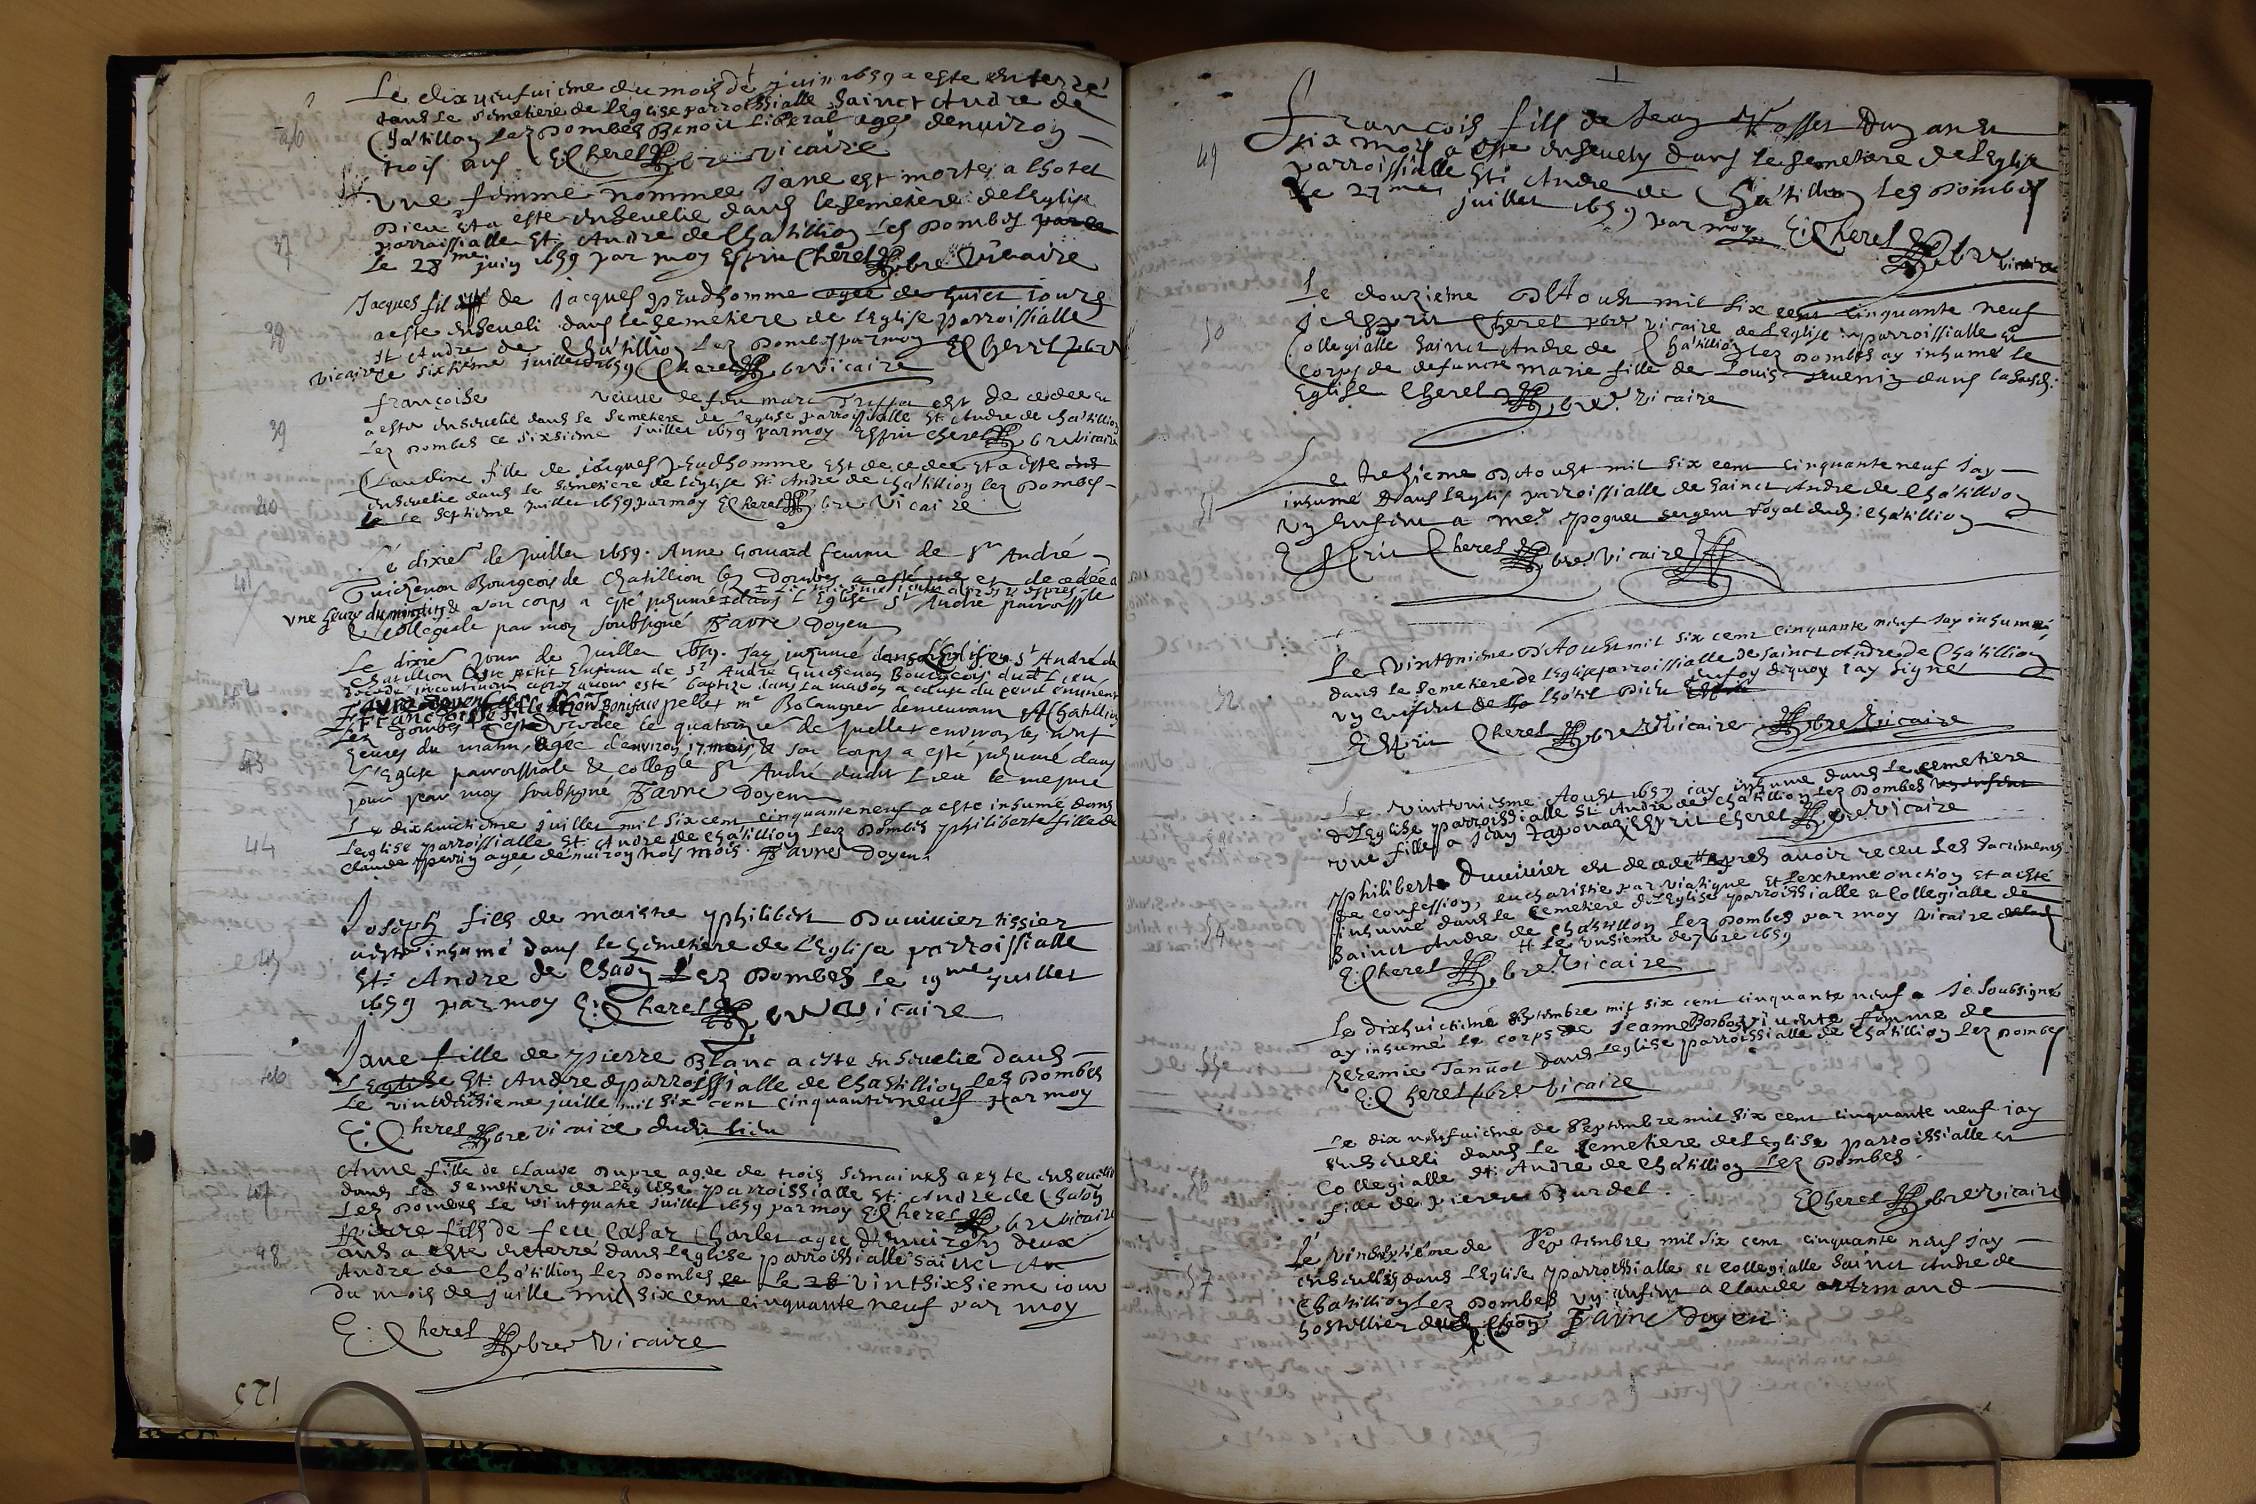 Le dix neufuiesme du mois de juin 1659 a este enterré
dans le semetiere de leglise parroissialle sainct Andre de
Chatillon lez Dombes Benoit Liberal agé denuiron
36
trois ans E: Cherel pbre vicaire
Une femme nommee Jane est morte a lhotel
Dieu et a este enseuelie dans le semetiere de leglise
37
parroissialle St: Andre de Chatillion les Dombes
le 28me juin 1659 par moy Esprit Cherel pbre vicaire
Jacques fil de Jacques prudhomme agee de huict jours
38
a este enseueli dans le semetiere de leglise parroissialle
St Andre de Chatillion lez Dombes par moy E Cherel pbre
vicaire le sixtieme juillet 1659 Cherel pbre vicaire
françoise veuue de feu marc est decedee et
39
a este enseuelie dans le semetiere de leglise parroissialle St: Andre de Chatillion
lez Dombes ce sixsieme juillet 1659 par moy Esprit Cherel pbre vicaire
Claudine fille de jacques prudhomme est decedee et a este
enseuelie dans le semetiere de leglise St: Andre de Chatillion lez Dombes
40
le septieme juillet 1659 par moy E Cherel pbre vicaire
Le dixiee de juillet 1659. Anne Gouuard femme de Sr André
41
Guichenon Bourgeois de Chatillion lez Dombes est decedée a
une heure du & son corps a esté inhumé dans l'Eglise St André parrossle
& collegiale par moy soubsigné Favre Doyen
Le dixiee jour de juillet 1659. Jay inhumé dans l'Eglise St André de
Chatillion petit enfant de Sr André Guichenon Bourgeois dudt lieu
42
decedé incontinent apres auoir esté baptizé dans la maison a cause du peril eminent
Françoise fille Boniface pellet me Bolanger demeurant A Chatillion
lez Dombes est decedee le quatorze de juillet environ les
heures du matin, agee denviron 17 mois & son corps a esté inhumé dans
43
l'Eglise parrossiale & collegle St André dudit lieu le mesme
jour par moy soubsigné Favre Doyen
Le dixhuictieme juillet mil six cent cinquante neuf a este inhumé dans
44
leglise parroissialle St: Andre de Chatillion lez Dombes philiberte fille de
Claude perrin agee denuiron trois mois. Favre Doyen
Joseph fils de maistre philibert Duuiuier tissier
a este inhumé dans le semetiere de l'Eglise parroissialle
45
St: Andre de Chaon Lez Dombes le 19me juillet
1659 par moy E: Cherel pbre vicaire
Jane fille de pierre Blanc a este enseuelie dans
46
l'Eglise St: Andre parroissialle de Chastillion lez Dombes
Le vintdeuxieme juille mil six cent cinquante neuf par moy
E: Cherel pbre vicaire dudit lieu
Anne fille de claude Dupre agee de trois semaines a este enseuelie
47
dans le semetiere de leglise parroissialle St: Andre de Chaon
lez Dombes le vintquatre juillet 1659 par moy E: Cherel pbre vicaire
Pierre fils de feu Cesar Charlet agee denuiron deux
48
ans a este enterré dans leglise parroissialle sainct
Andre de Chatillion lez Dombes le vintsixieme iour
du mois de juille mil six cent cinquante neuf par moy
E: Cherel pbre vicaire
125
François fils de Jean Vasset Dun an et
49
six moys a este enseuely dans le semetiere de leglise
parroissialle St: Andre de Chatillion lez Dombes
le 27me juillet 1659 par moy E: Cherel pbre
vicaire
Le douzieme D'Aoust mil six cent cinquante neuf
50
je Esprit Cherel pbre vicaire de leglise parroissialle et
Collegialle sainct Andre de Chatillion lez Dombes ay inhumé le
corps de defuncte marie fille de Louis dans lasusdi:
Eglise Cherel pbre vicaire
Le trezieme D'Aoust mil six cent cinquante neuf Jay
51
inhumé Dans leglise parroissialle de sainct Andre de Chatillion
un enfent a me: poguet sergent Royal dudi: Chatillion
Esprit Cherel pbre vicaire
Le vintunieme D'Aoust mil six cent cinquante neuf jay inhumé
52
dans le semetiere de leglise parroissialle de sainct Andre de Chatillion
un enfent de lhotel Dieu en foy dequoy jay signé
Esprit Cherel pbre vicaire pbre vicaire
Le vintunieme Aoust 1659 jay inhume dans le cemetiere
53
de leglise parroissialle St: Andre de Chatillion lez Dombes
une fille a Jean Esprit Cherel pbre vicaire
Philiberte Duuiuier est decede apres auoir receu les sacrements
de confession, eucharistie par viatique et lextreme onction et a este
54
inhumé dans le Cemetiere de leglise parroissialle et Collegialle de
sainct Andre de Chatillion lez Dombes par moy vicaire
le unsieme de 7bre 1659
E: Cherel pbre vicaire
Le dixhuictieme septembre mil six cent cinquante neuf Je soubsigné
55
ay inhumé le corps de Jeanne viuente femme de
Jeremie Januot dans leglise parroissialle de Chatillion lez Dombes
E: Cherel pbre vicaire
Le dix neufuieme de septembre mil six cent cinquante neuf jay
56
enseueli dans le semetiere de leglise parroissialle et
Collegialle St: Andre de Chatillion lez Dombes
fille de pierre Burdel. E Cherel pbre vicaire
Le vintsixieme de septembre mil six cent cinquante neuf jay
57
enseueli dans l'Eglise parroissialle et collegialle sainct Andre de
Chatillion lez Dombes un enfent a claude Armand
hostellier dudi Chaon Favre Doyen